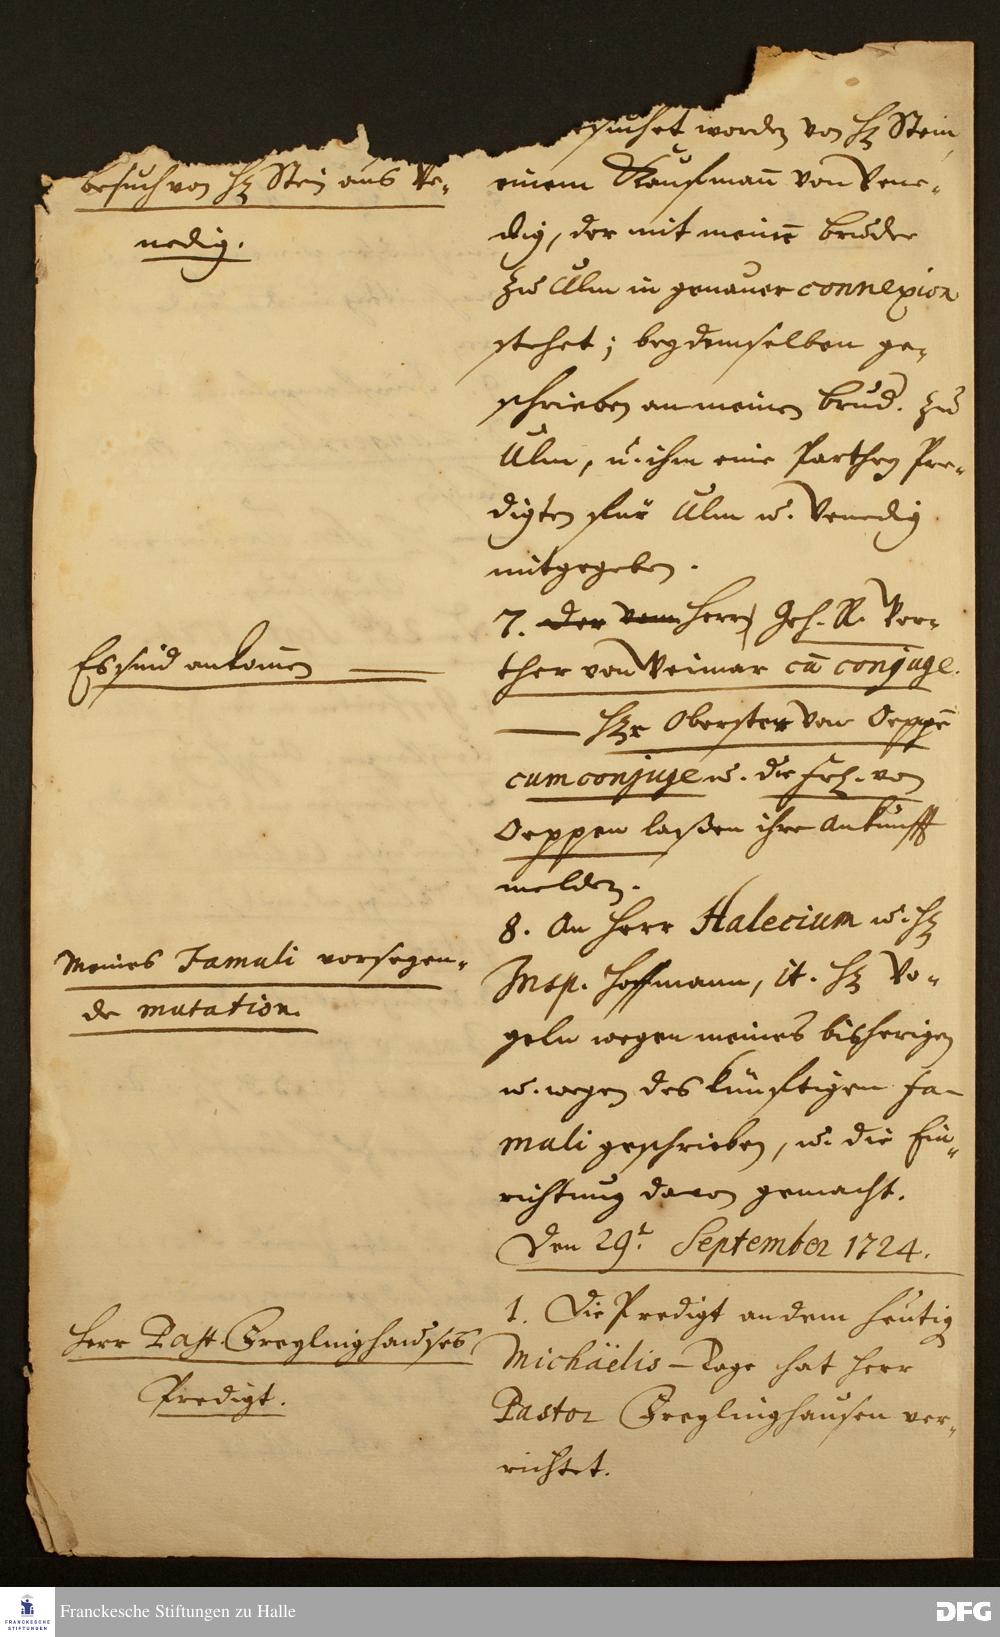 besuch von H. Stein aus Ve-
nedig.
esuchet worden von H. Stein,
einem Kaufmann von Vene-
dig, der mit meinem bruder
zu Ulm in genauer connexion
stehet; bey demselben ge-
schrieben an meinen brud. zu
Ulm, u. ihm eine Parthey Pre-
digten für Ulm u. Venedig
mitgegeben.
Es sind ankom̄en
7. der vom Herr Geh. R. Vor-
ther von Weimar cū conjuge.
Hr Obrister von Oeppē
cum conjuge u. die Frl. von
Oeppen laßen ihre Ankunfft
melden.
Meines Famuli vorseyen-
de mutation.
8. An Herr Halecium u. H.
Insp. Hoffmann, it. H. Vo-
geln wegen meines bisherigen
u. wegen des künfftigen Fa-
muli geschrieben, u. die Ein-
richtung davon gemacht.
Den 29t. September 1724.
Herr Past. Greglinghauses
Predigt.
1. Die Predigt an dem heutig
Michäelis-Tage hat Herr
Pastor Greglinghausen ver-
richtet.
FRANCKESCHE
STIFTUNGEN
Franckesche Stiftungen zu Halle
DFG